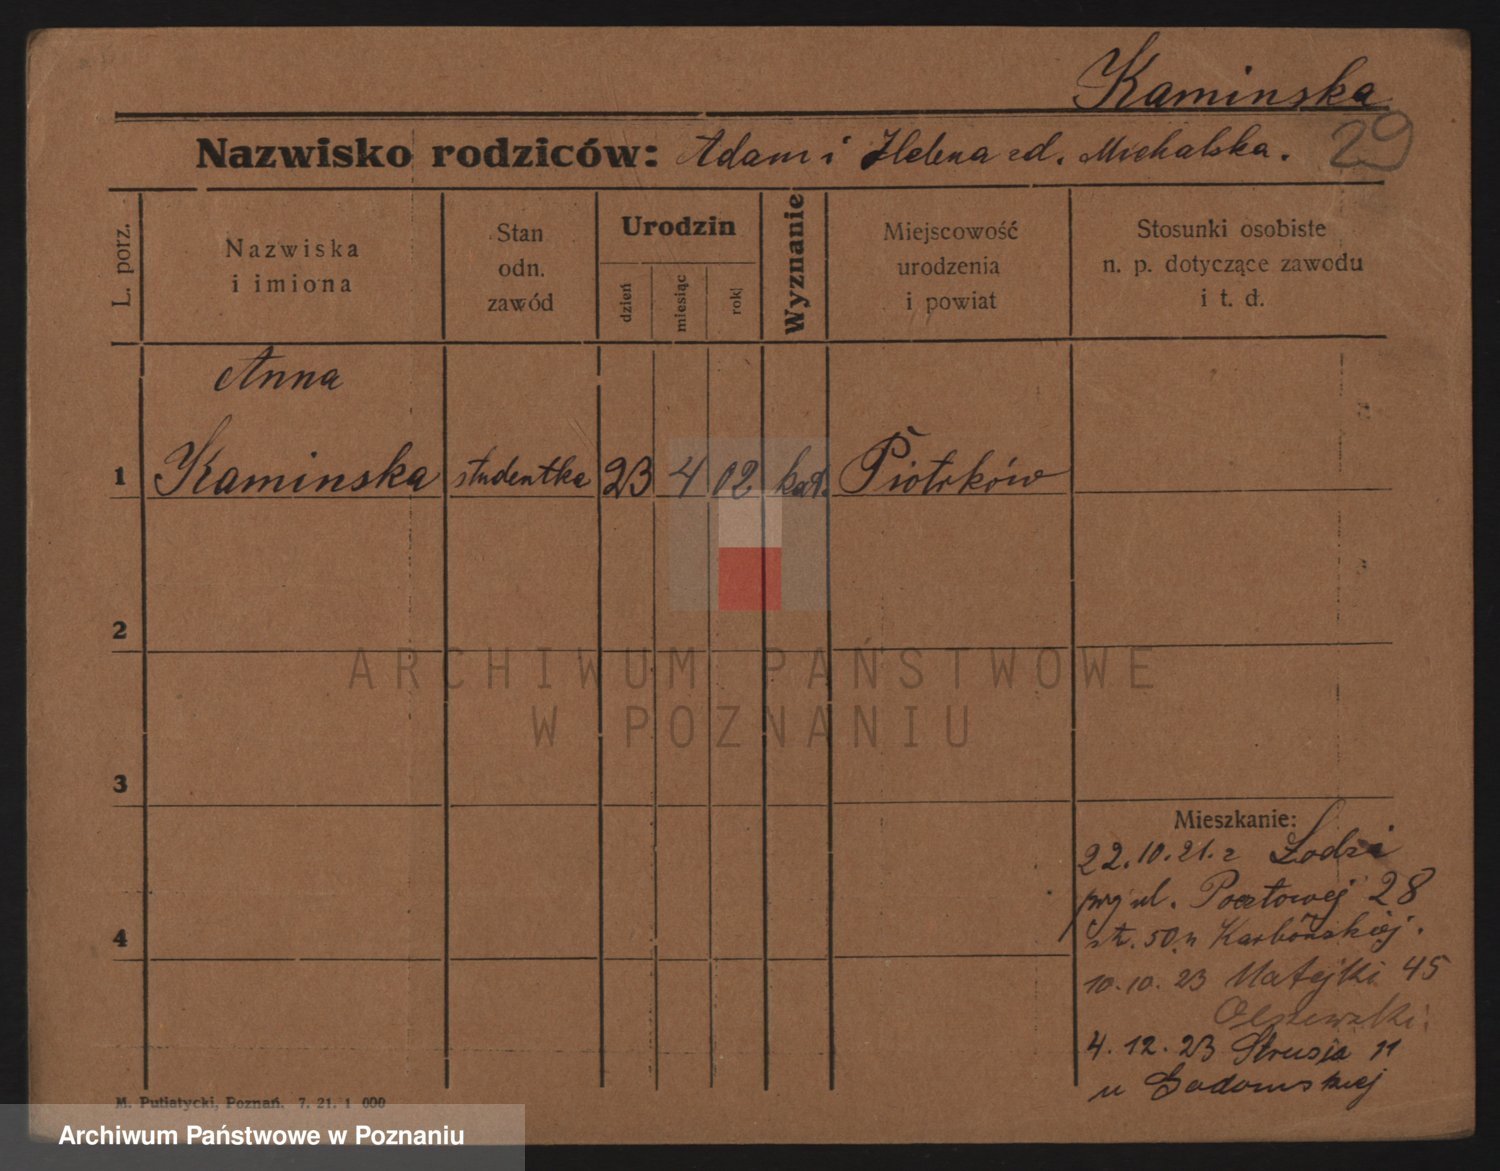 Kaminska
29
Nazwisko rodziców: Adam i Helena zd. Michalska.
L. porz.
Nazwiska
i imiona
Stan
odn.
zawód
Urodzin
dzień
miesiąc
rok
Wyznanie
Miejscowość
urodzenia
i powiat
Stosunki osobiste
n. p. dotyczące zawodu
i t. d.
Anna
1 Kaminska studentka 23 4 02 kat. Piotrków
2
3
4
Mieszkanie:
22.10.21. z Łodzi
ul. Pocztowej 28
50
10.10.23 Matejki 45
Olszewski
4.12.23 Strusia 11
u Sadowskiej
M. Putiatycki, Poznań. 7. 21. 1 000
ARCHIWUM PAŃSTWOWE
W POZNANIU
Archiwum Państwowe w Poznaniu